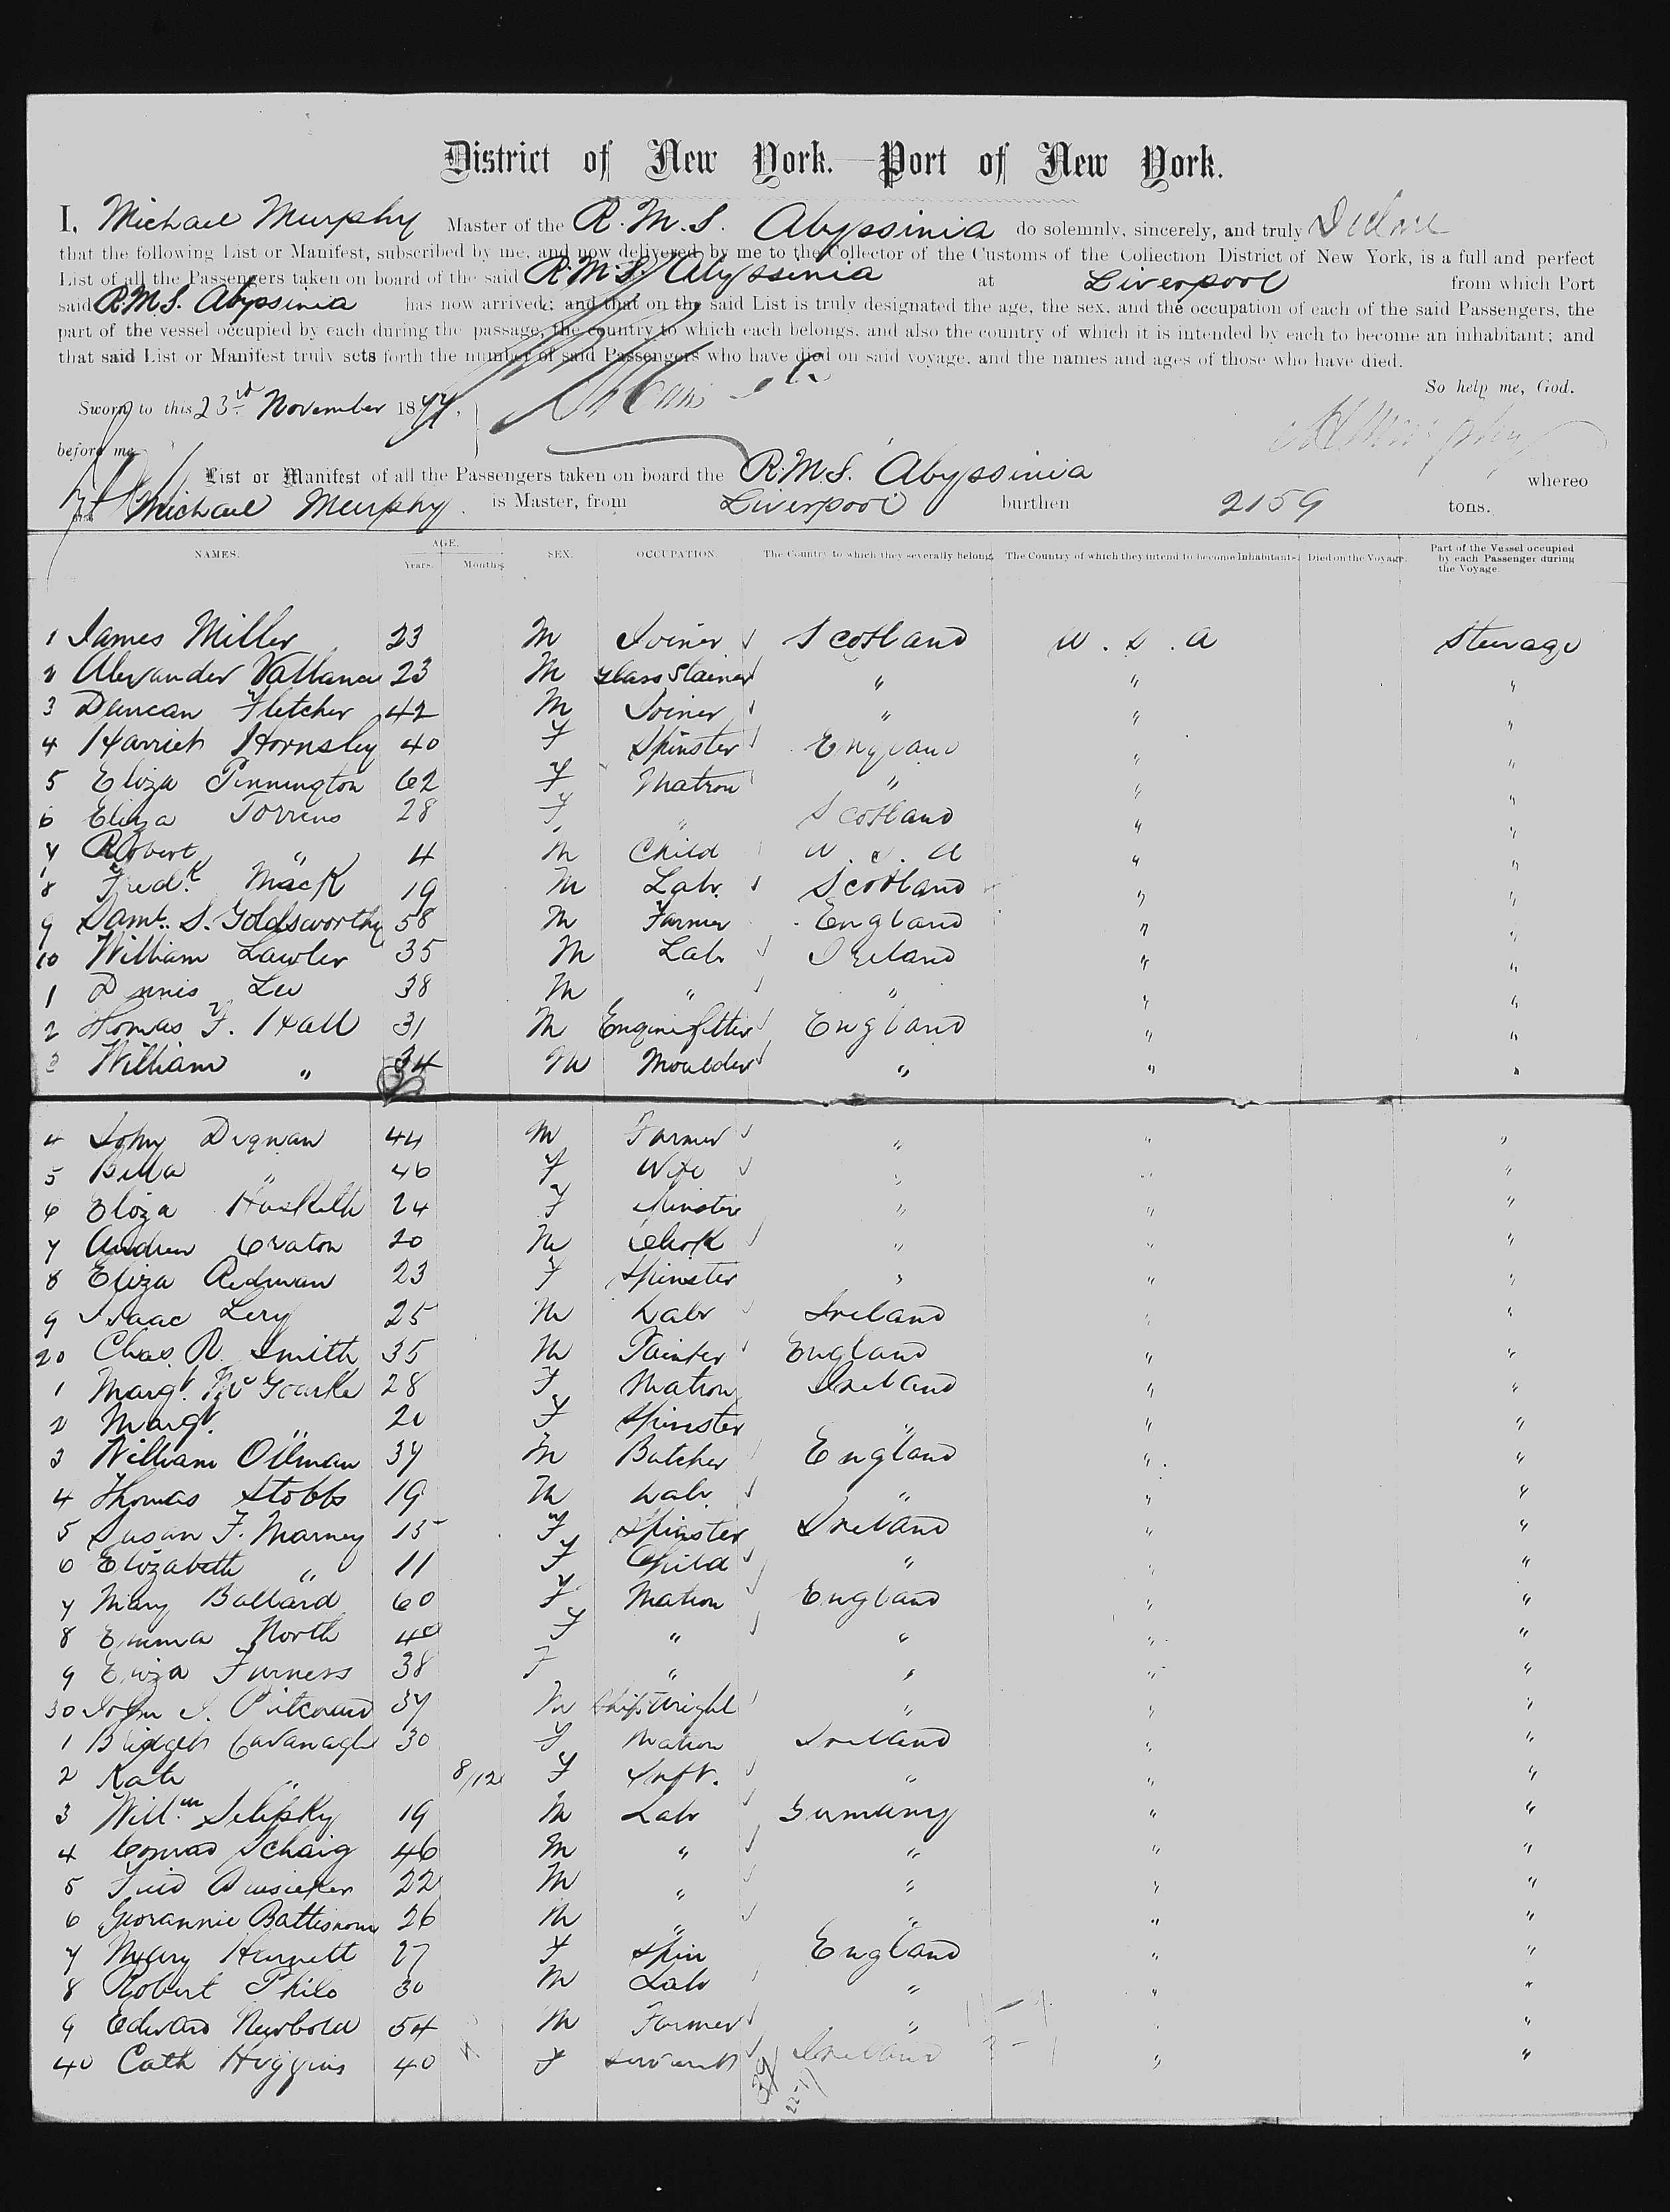 District of New York.—Port of New York.
I, Michael Murphy Master of the R.M.S. Abyssinia do solemnly, sincerely, and truly Declare
that the following List or Manifest, subscribed by me, and now delivered by me to the Collector of the Customs of the Collection District of New York, is a full and perfect
List of all the Passengers taken on board of the said R.M.S. Abyssinia at Liverpool from which Port
said R.M.S. Abyssinia has now arrived; and that on the said List is truly designated the age, the sex, and the occupation of each of the said Passengers, the
part of the vessel occupied by each during the passage, the country to which each belongs, and also the country of which it is intended by each to become an inhabitant; and
that said List or Manifest truly sets forth the number of said Passengers who have died on said voyage, and the names and ages of those who have died.
So help me, God.
Sworn to this 23rd November 1877.
M Murphy
before me
List or Manifest of all the Passengers taken on board the R.M.S. Abyssinia whereo
Michael Murphy is Master, from Liverpool burthen 2159 tons.
NAMES. AGE. Years. Months. SEX. OCCUPATION The Country to which they severally belong. The Country of which they intend to become Inhabitants. Died on the Voyage. Part of the Vessel occupied by each Passenger during the Voyage.
1 James Miller 23 M Joiner Scotland U.S.A Steerage
2 Alexander Vallance 23 M Glass Stainer " " "
3 Duncan Fletcher 42 M Joiner " " "
4 Harriet Hornsley 40 F Spinster England " "
5 Eliza Pinnington 62 F Matron " " "
6 Eliza Torrens 28 F " Scotland " "
7 Robert " 4 M Child U.S.A " "
8 Fredk Mack 19 M Labr Scotland " "
9 Saml. S. Goldsworthy 58 M Farmer England " "
10 William Lawler 35 M Labr Ireland " "
1 Dennis Lee 38 M " " " "
2 Thomas F. Hall 31 M Engine fitter England " "
3 William " 34 M Moulder " " "
4 John Dignan 44 M Farmer " " "
5 Bella " 46 F Wife " " "
6 Eliza 24 F Spinster " " "
7 Andrew Craton 20 M Clerk " " "
8 Eliza Redman 23 F Spinster " " "
9 Isaac Levy 25 M Labr Ireland " "
20 Chas. R. Smith 35 M Painter England " "
1 Margt. 28 F Matron Ireland " "
2 Margt. " 20 F Spinster " " "
3 William Ollman 37 M Butcher England " "
4 Thomas Stobbs 19 M Labr " " "
5 Susan F. Marney 15 F Spinster Ireland " "
6 Elizabeth " 11 F Child " " "
7 Mary Ballard 60 F Matron England " "
8 Emma North 40 F " " " "
9 Eliza Furness 38 F " " " "
30 John J. Pritchard 37 M Shipwright " " "
1 Bridget Cavanagh 30 F Matron Ireland " "
2 Kate " 8/12 F Inft. " " "
3 Willm 19 M Labr Germany " "
4 Conrad Schaig 46 M " " " "
5 22 M " " " "
6 26 M " " " "
7 Mary Harnett 27 F Spin England " "
8 Robert Philo 30 M Labr " " "
9 Edward Newbold 54 M Farmer " "
40 Cath Higgins 40 F Servant Ireland " "